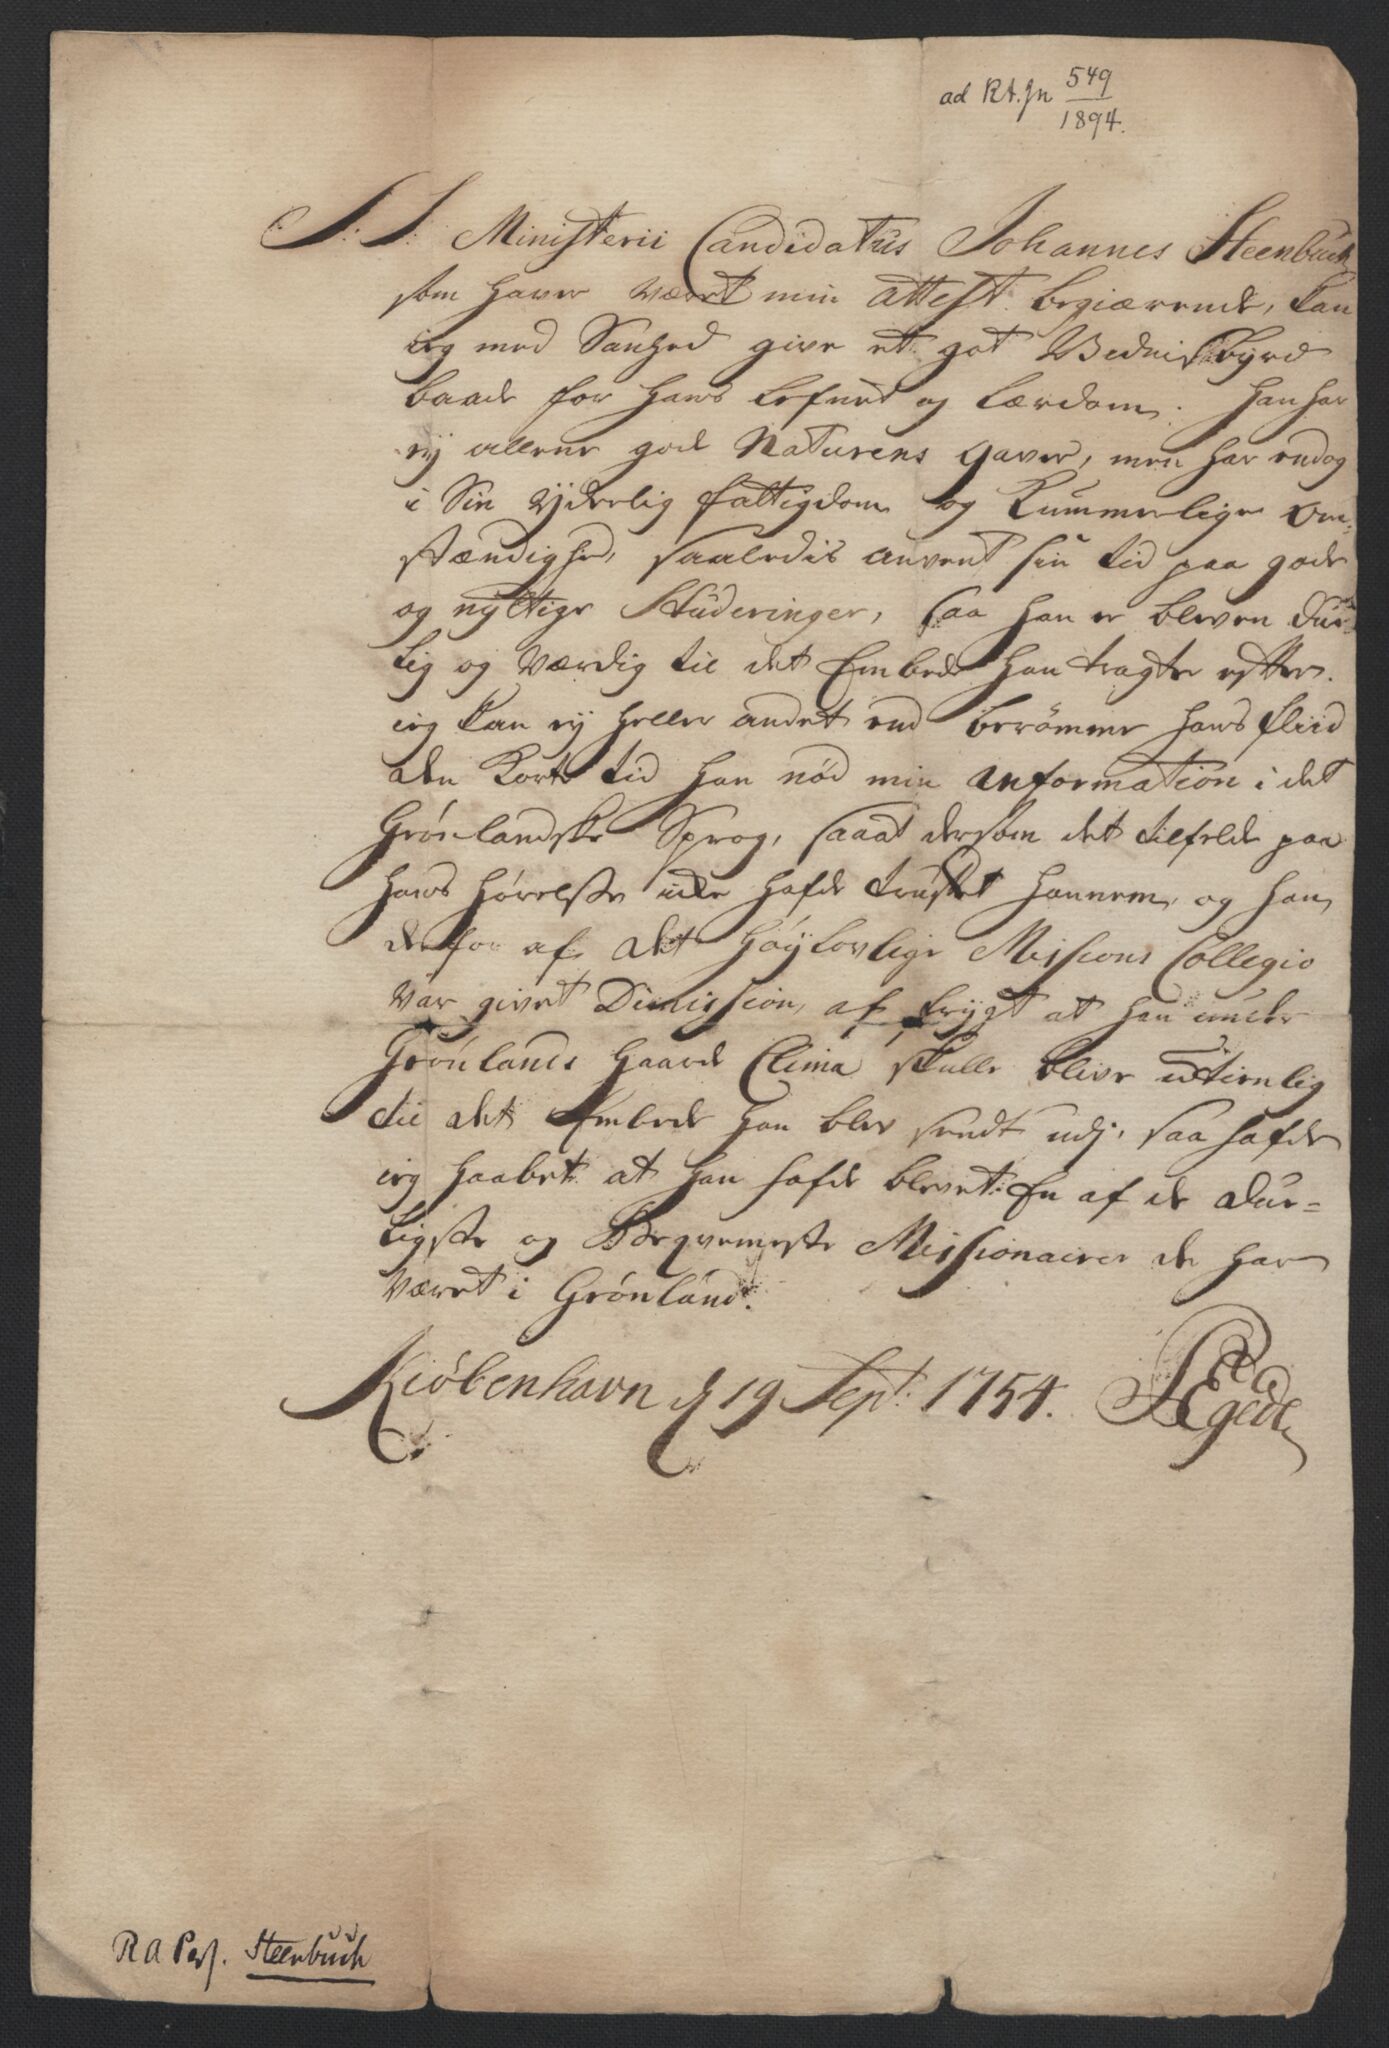 ad RA. Jn 549/1894.
S. S. Ministerii Candidatus Johannes Steenbuch
som haver været min attest begiærende, kan
ieg med Sanhed give et got Vidnisbyrd
baade for hans Lefnet og Lærdom. Han har
ej allene gode Naturens gaver, men har endog
i Sin yderlig fattigdom og Kummerlige Om-
stændighed, saaledis anvent sin tid paa gode
og nyttige Studeringer, saa han er bleven due-
lig og værdig til det Embede han tragter efter.
ieg kan ej heller andet end berømme hans fliid
den korte tid han nød min information i det
Grønlandske Sprog, saa at dersom det tilfelde paa
hans hørelse icke hafde truffet hannem, og han
derfor af det høylovlige Missions Collegio
var givet Dimission, af frygt at han under
Grønlands haarde Clima skulle blive utienlig
til det Embede han blev sendt udj, saa hafde
ieg haabet at han hafde blevet En af de due-
ligste og Beqvemmeste Missionairer der har
været i Grønland.
Kiøbenhavn d 19 Sept: 1754. P Egede
R A Pers. Steenbuch